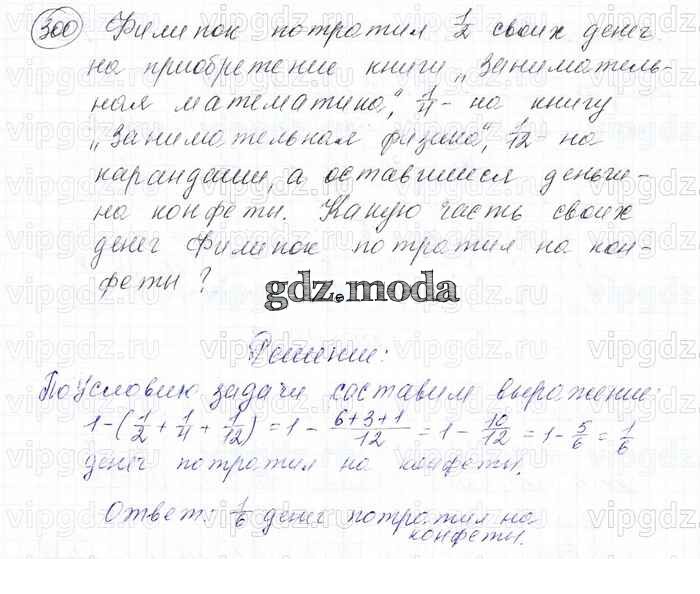 300 Филипок потратил 1/2 своих денег
на приобретение книги „Заниматель-
ная математика", 1/4 - на книгу
„Занимательная физика", 1/12 - на
карандаши, а оставшиеся деньги -
на конфеты. Какую часть своих
денег Филипок потратил на кон-
феты?
gdz.moda
Решение:
По условию задачи составим выражение:
1-(1/2+1/4+1/12)=1-(6+3+1)/12=1-10/12=1-5/6=1/6
денег потратил на конфеты.
Ответ: 1/6 денег потратил на
конфеты.
vipgdz.ru